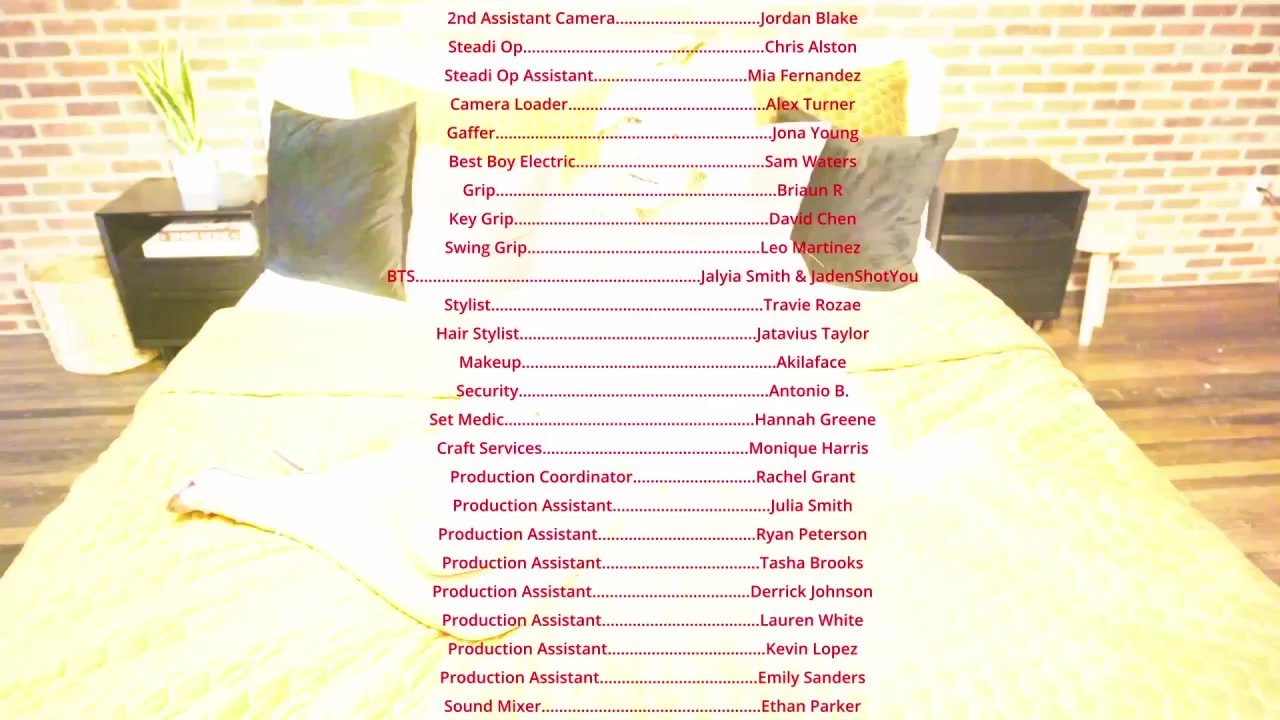 2nd Assistant Camera.................................Jordan Blake
Steadi Op.......................................................Chris Alston
Steadi Op Assistant...................................Mia Fernandez
Camera Loader.............................................Alex Turner
Gaffer...............................................................Jona Young
Best Boy Electric...........................................Sam Waters
Grip................................................................Briaun R
Key Grip..........................................................David Chen
Swing Grip.....................................................Leo Martinez
BTS.................................................................Jalyia Smith & JadenShotYou
Stylist..............................................................Travie Rozae
Hair Stylist......................................................Jatavius Taylor
Makeup..........................................................Akilaface
Security.........................................................Antonio B.
Set Medic.........................................................Hannah Greene
Craft Services...............................................Monique Harris
Production Coordinator............................Rachel Grant
Production Assistant....................................Julia Smith
Production Assistant....................................Ryan Peterson
Production Assistant....................................Tasha Brooks
Production Assistant....................................Derrick Johnson
Production Assistant....................................Lauren White
Production Assistant....................................Kevin Lopez
Production Assistant....................................Emily Sanders
Sound Mixer..................................................Ethan Parker